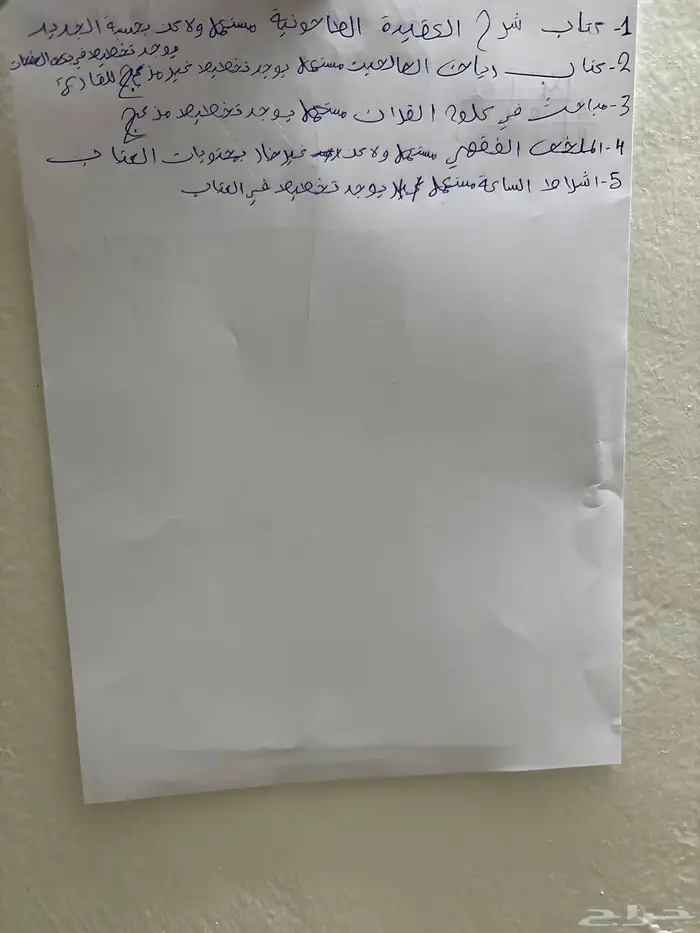 1- كتاب شرح العقيدة الصابونية مستعمل ولاكن بحسبة الجديد
يوجد تخطيط في بعض الصفحات
2- كتاب رياض الصالحين مستعمل يوجد تخطيط غير مزعج للقارئ
3- مباحث في علوم القران مستعمل يوجد تخطيط مزعج
4- الملخص الفقهي مستعمل ولاكن غير ضار بمحتويات الكتاب
5- اشراط الساعة مستعمل يوجد تخطيط في الكتاب
حراج